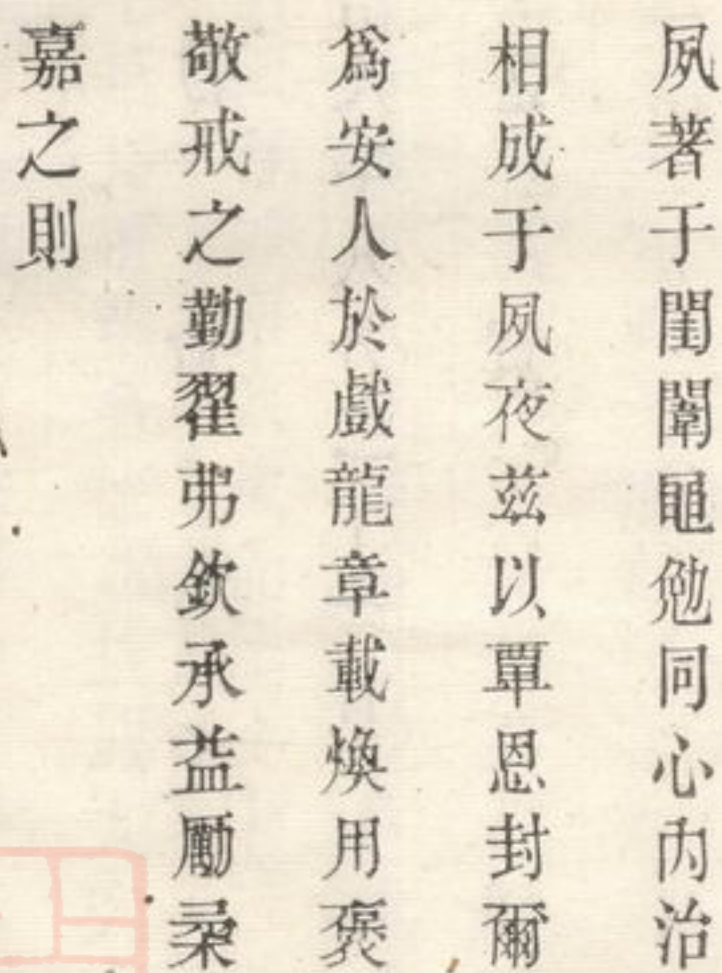 夙著于閨闈黽勉同心內治
相成于夙夜茲以覃恩封爾
爲安人於戲龍章載煥用褒
敬戒之勤翟茀欽承益勵柔
嘉之則